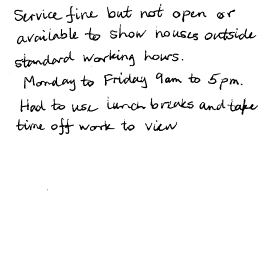 Service fine but not open or
available to show houses outside
standard working hours.
Monday to Friday 9am to 5pm.
Had to use lunch breaks and take
time off work to view